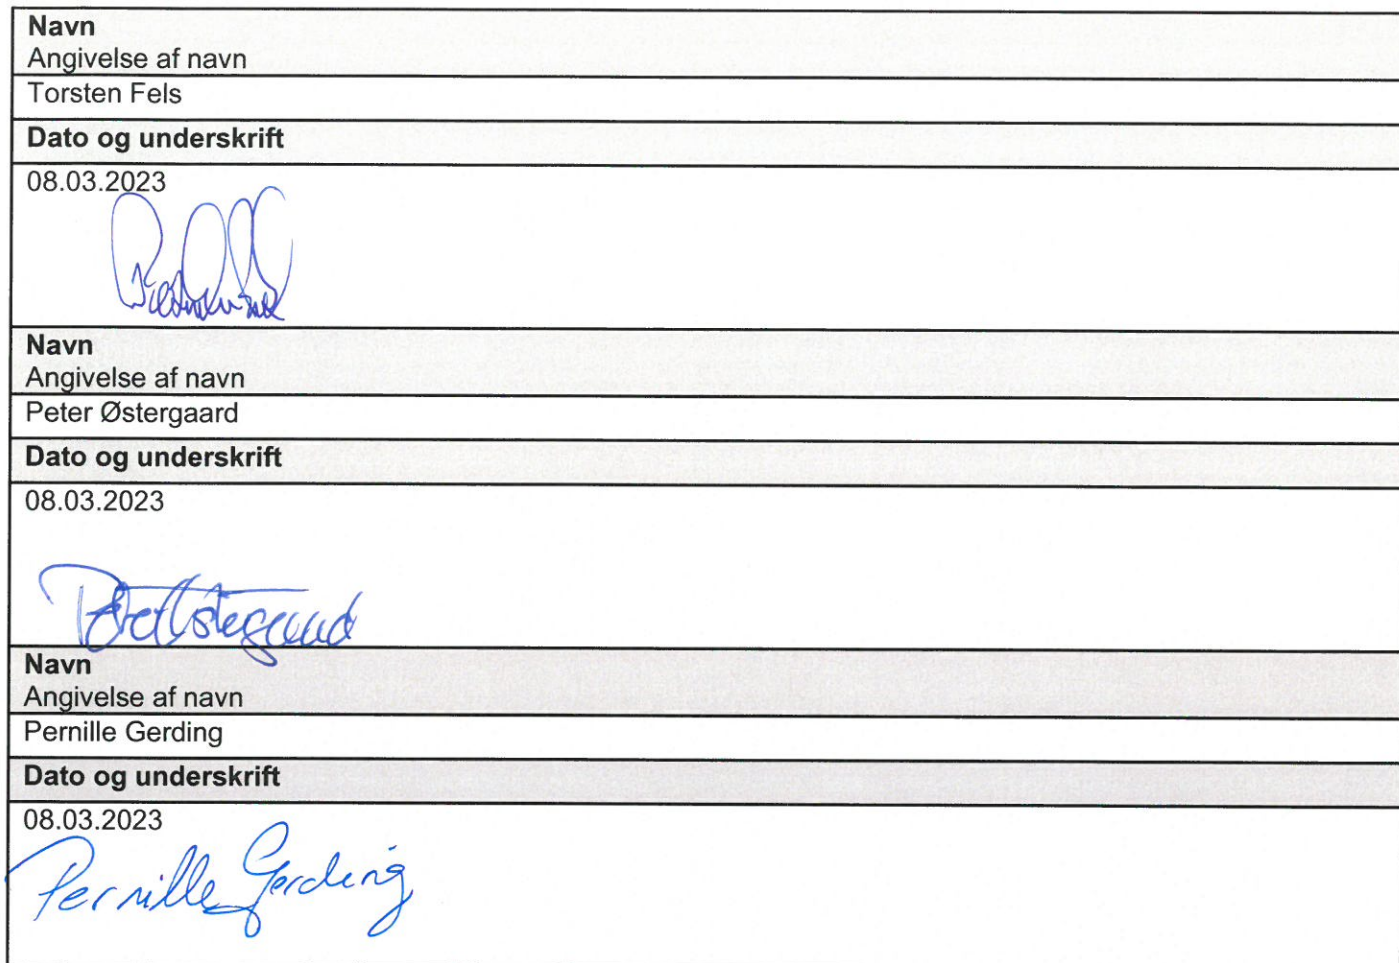 Navn
Angivelse af navn
Torsten Fels
Dato og underskrift
08.03.2023
Navn
Angivelse af navn
Peter Østergaard
Dato og underskrift
08.03.2023
Peter Østergaard
Navn
Angivelse af navn
Pernille Gerding
Dato og underskrift
08.03.2023
Pernille Gerding